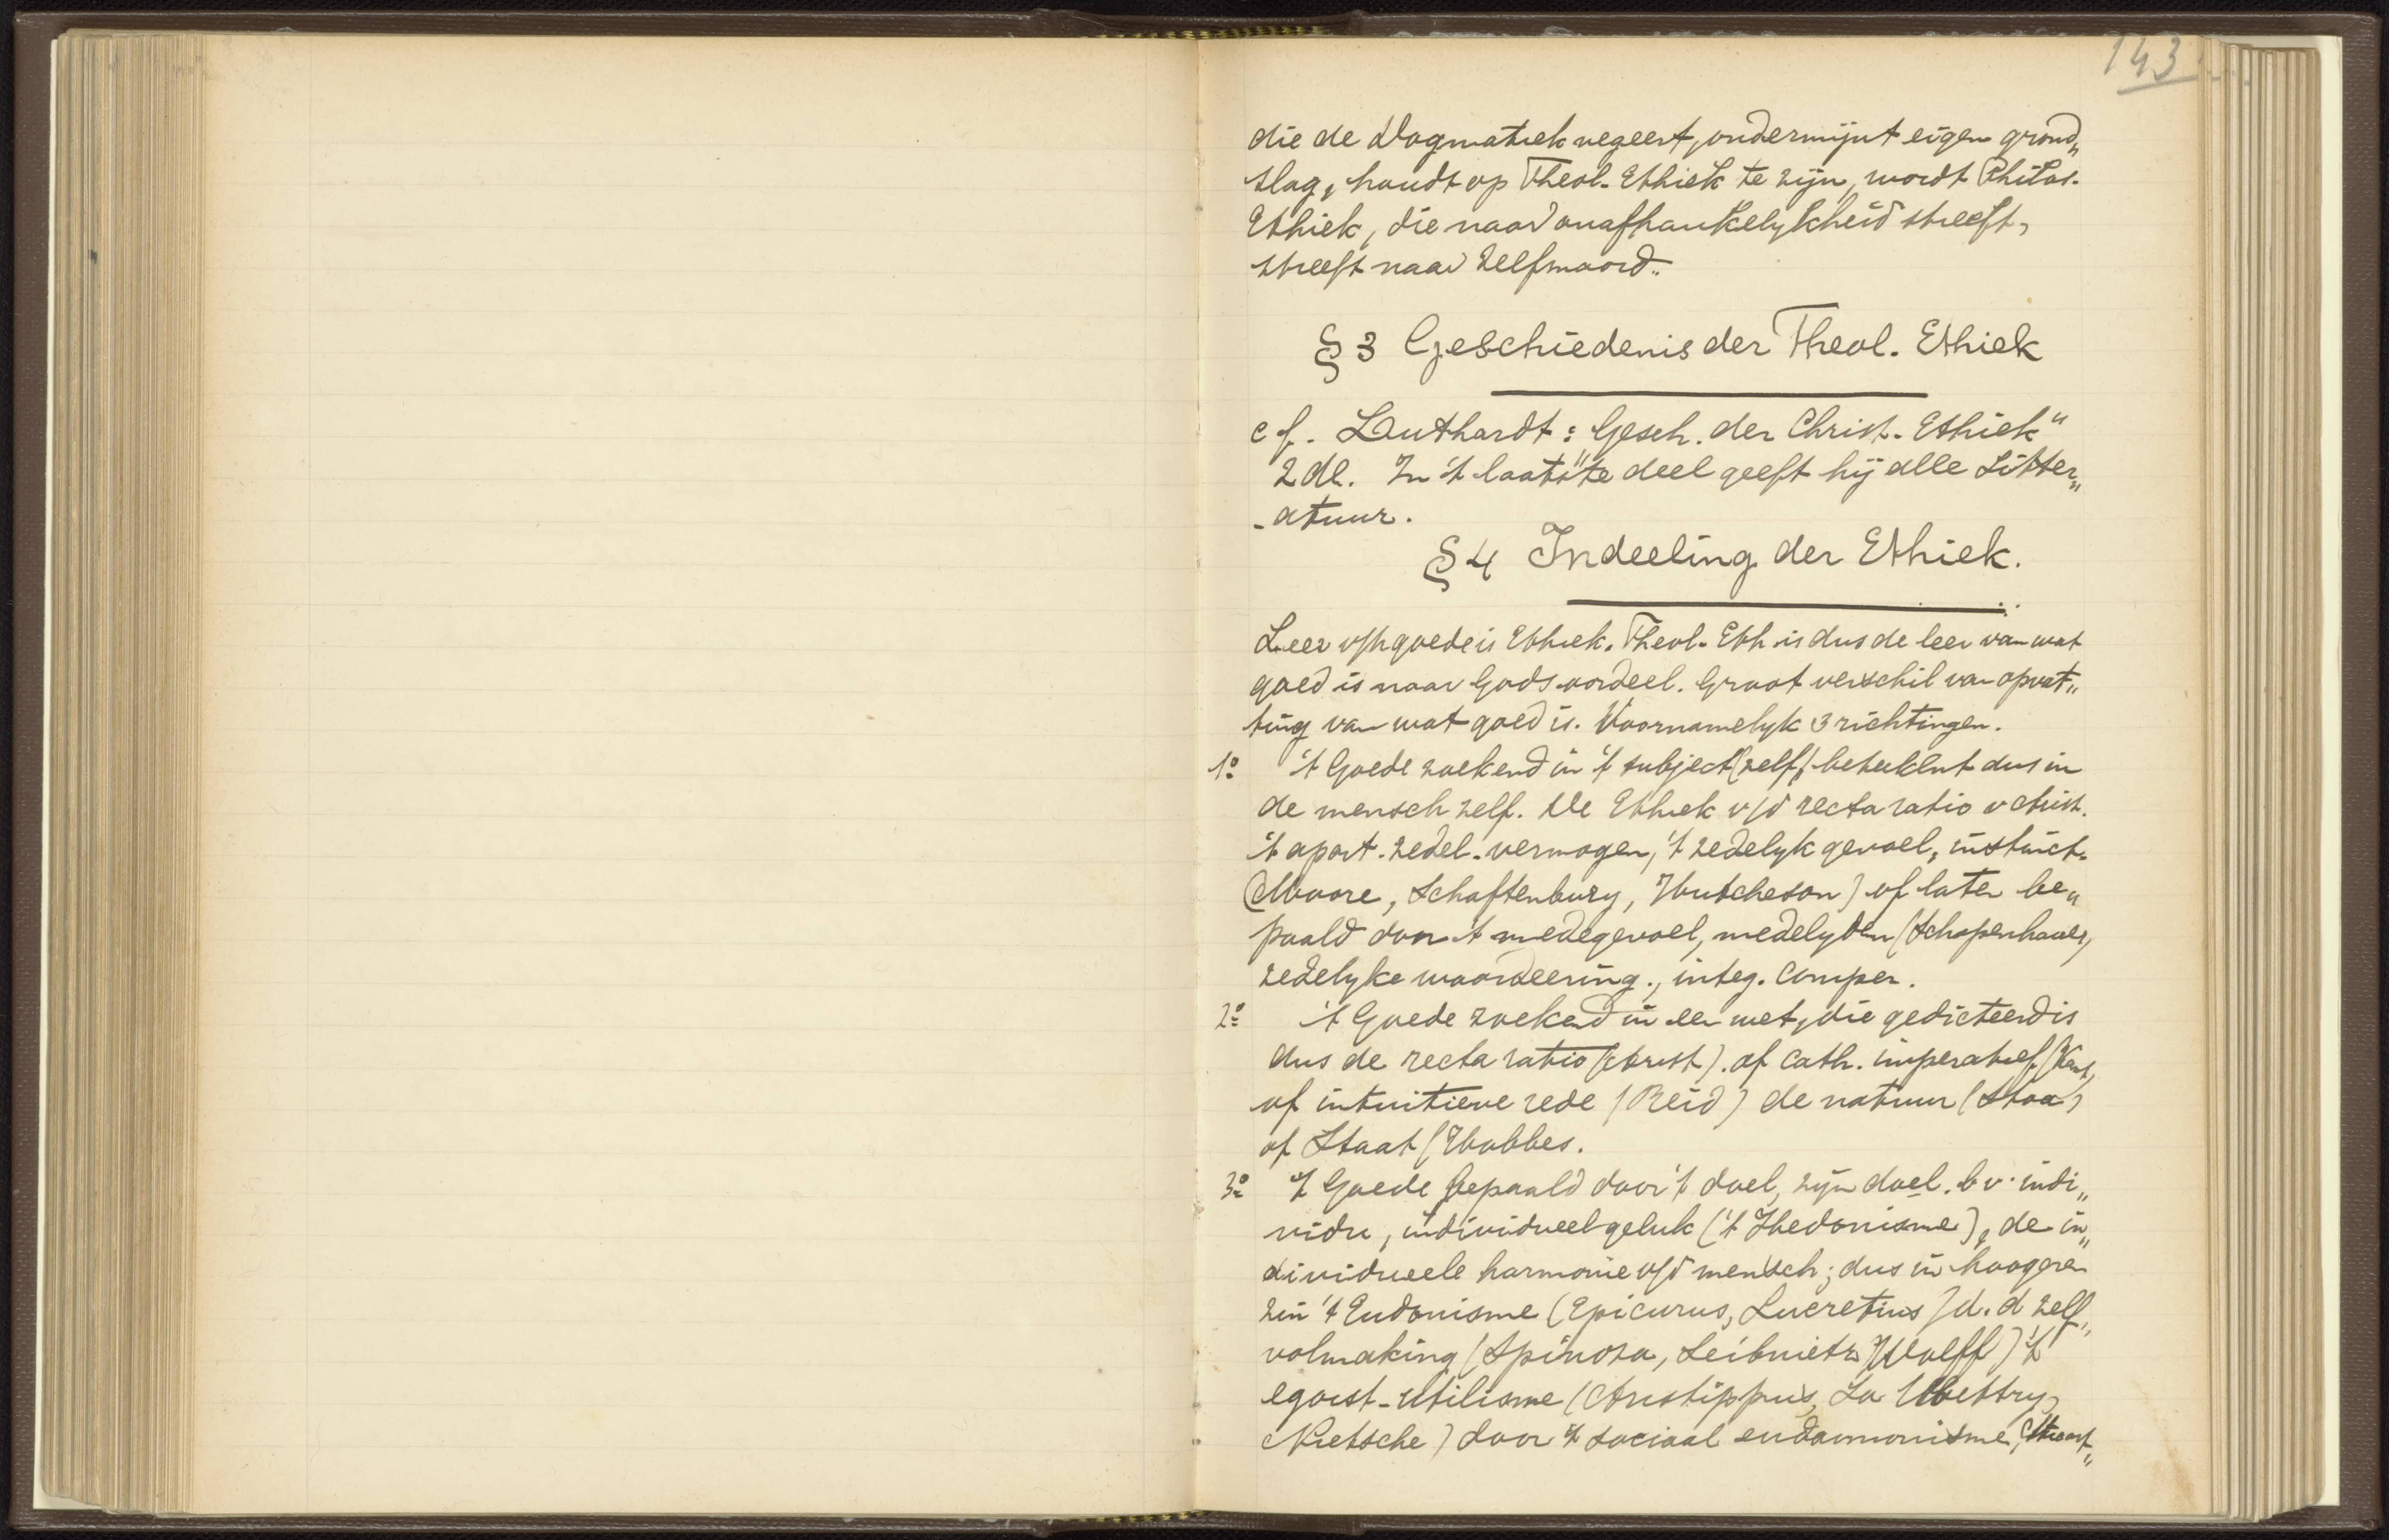 143
die de Dogmatiek negeert, ondermijnt eigen grond„
slag, houdt op Theol. Ethiek te zijn, wordt Philos.
Ethiek, die naar onafhankelykheid streeft,
streeft naar zelfmoord.
§ 3 Geschiedenis der Theol. Ethiek
cf. Luthardt: „Gesch. der Christ. Ethiek"
2 dl. In 't laatste deel geeft hij alle Litter„
-atuur.
§ 4 Indeeling der Ethiek.
Leer v/h goede is Ethiek. Theol. Eth is dus de leer van wat
goed is naar Gods oordeel. Groot verschil van opvat„
ting van wat goed is. Voornamelyk 3 richtingen.
1º 't Goede zoekend in 't subject (zelf) beteeknt dus in
de mensch zelf. De Ethiek v/d recta ratio v Arist.
't apart. zedel. vermogen, 't zedelyk gevoel, instinct.
(Moore, Schaftenbury, Hutcheson) of later be„
paald door 't medegevoel, medelyden (Schopenhauer,
zedelyke waardeering., integ.
2º 't Goede zoekend in een wet, die gedicteerd is
dus de recta ratio (Arist). of Cath. imperatief (Kant,
of intuitieve rede (Reid) de natuur (Stoa)
of Staat (Hobbes.
3º 't Goede bepaald door 't doel, zijn doel. b v. indi„
vidu, individueel geluk ('t Hedonisme), de in„
dividueele harmonie v/d mensch; dus in hoogeren
zin 't Eudonisme (Epicurus, Lucretius) d. d zelf„
volmaking (Spinoza, Leibnietz Wolff) 't
egoist-utilisme (Aristippus, La Mettry,
Nietsche) door 't sociaal eudaemonisme,